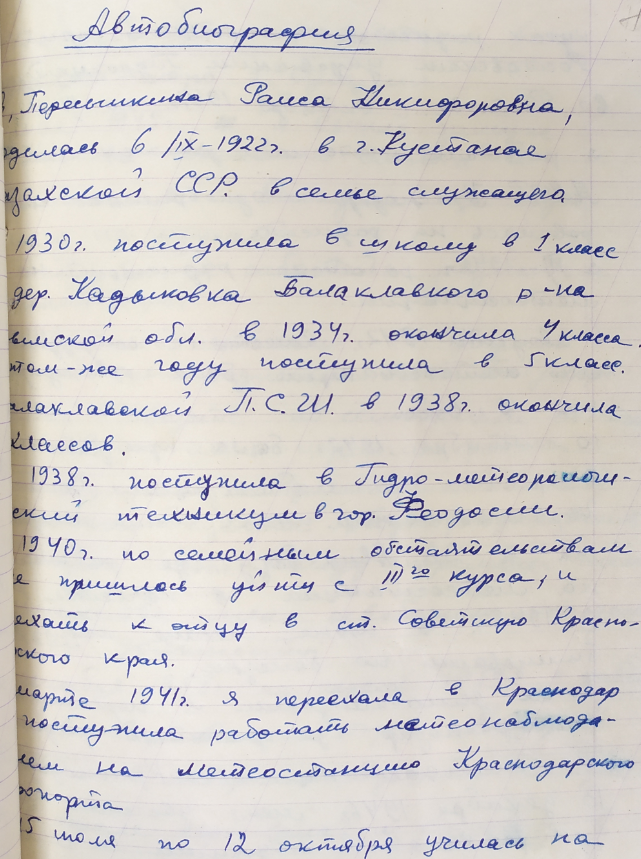 Автобиография
, Пересыпкина Раиса Никифоровна,
дилась 6/IX-1922г. в г. Кустанае
захской ССР. в семье служащего.
1930г. поступила в школу в 1 класс
дер. Кадыковка Балаклавкого р-на
ымской обл. в 1934г. окончила 4 класса.
том-же году поступила в 5 класс.
алаклавской П.С.Ш. в 1938г. окончила
классов.
1938г. поступила в Гидро-метеорологи-
ский техникум в гор. Феодосии.
1940г. по семейным обстаятельствам
е пришлось уйти с III го курса, и
ехать к отцу в ст. Советскую Красно-
ского края.
марте 1941г. я переехала в Краснодар
поступила работать метеонаблюда-
лем на метеостанцию Краснодарского
ропорта
15 июля по 12 октября училась на